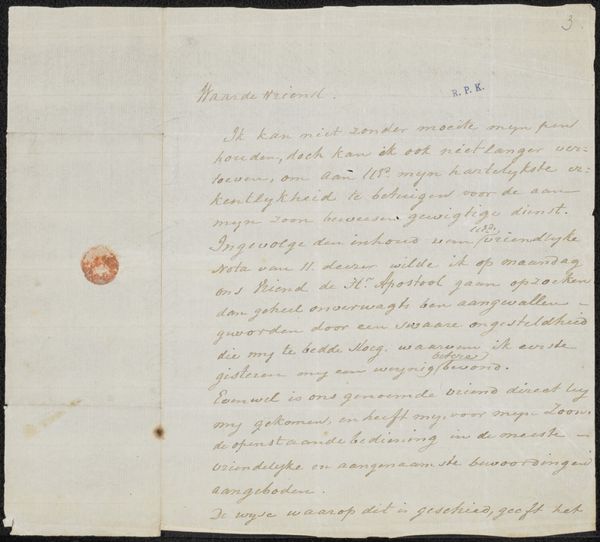 3
R. P. K.
Waarde Vriend.
Ik kan niet zonder moeite myn pen
houden, doch kan ik ook niet langer ver-
toeven, om aan UEd. myn hartelykste er-
kentlykheid te betuigen voor de aan
myn zoon beweesen gewigtige dienst.
Ingevolge den inhoud van UEd. vriendlyke
Nota van 11. deezer wilde ik op maandag
ons Vriend de Hr. Apostool gaan opzoeken
dan geheel onverwagts ben aangevallen
geworden door een swaare ongesteldheid
die my te bedde sloeg. waarvan ik eerst
gisteren my een weynig betere bevond.
Evenwel is ons genoemde vriend direct by
my gekomen, en heeft my, voor myn Zoon,
de openstaande bediening in de meeste
vriendelyke en aangenaamste bewoordingen
aangeboden.
De wyse waarop dit is geschied, geeft het